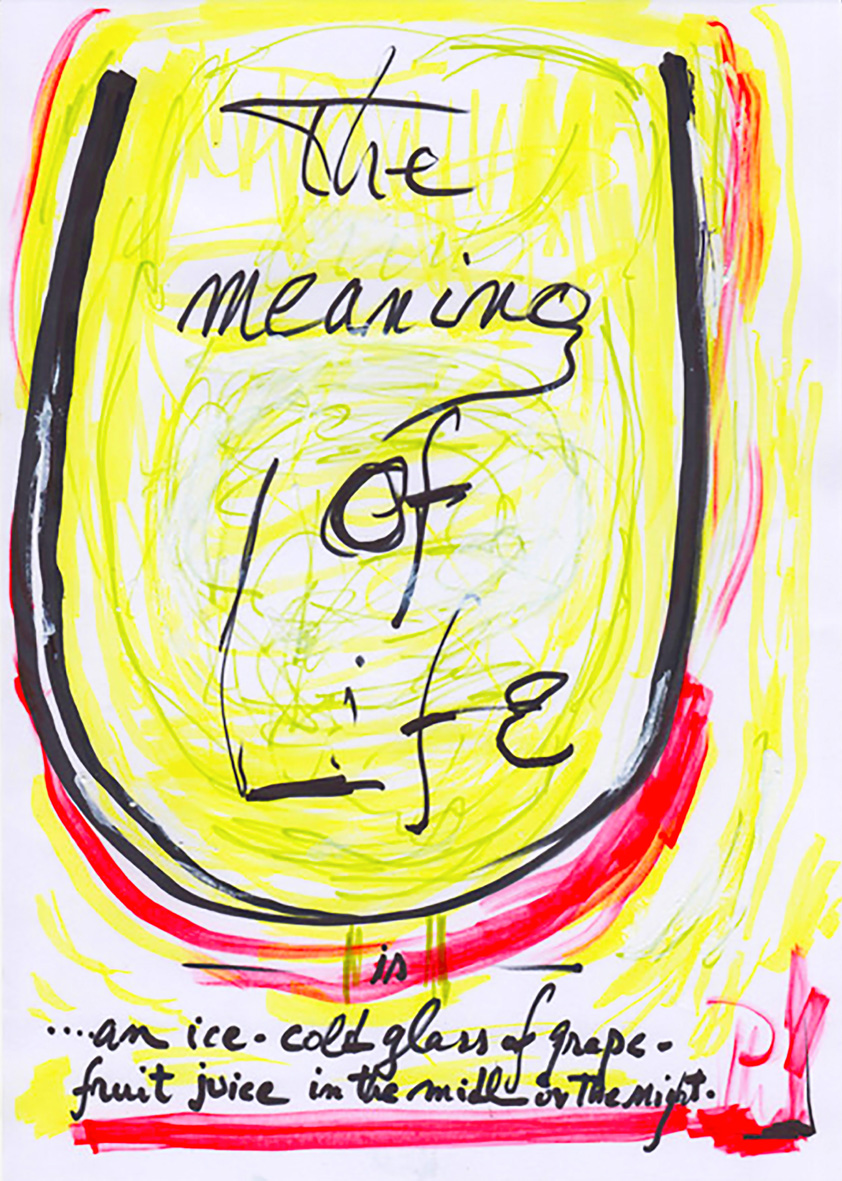 The
meaning
of
Life
is
....an ice-cold glass of grape-
fruit juice in the middle of the night.